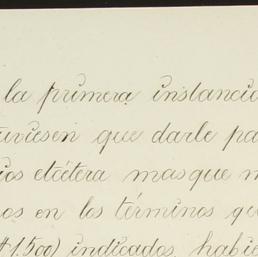 la primera instancia
tuviesen que darle pa
ios etcétera mas que m
nos en los términos qu
$1.500) indicados, habie